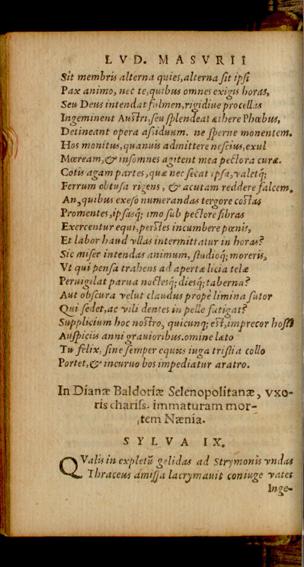 LVD. MASVRII
Sit membris alterna quies, alterna sit ipsi
Pax animo, nec te, quibus omnes exigis horas,
Seu Deus intendat fulmen, rigidiue procellas
Ingeminent Austri, seu splendeat æthere Phœbus,
Detineant opera asiduum. ne sperne monentem.
Hos monitus, quanuis admittere nescius, exul
Mœream, & insomnes agitent mea pectora curæ.
Cotis agam partes, quæ nec secat ipsa, valetq;
Ferrum obtusa rigens, & acutam reddere falcem.
An, quibus exeso numerandas tergore costas
Promentes, ipsasq; imo sub pectore fibras
Exercentur equi, perstes incumbere pœnis,
Et labor haud vllas intermittatur in horas?
Sic miser intendas animum, studioq; moreris,
Vt qui pensa trahens ad apertæ licia telæ
Peruigilat parua noctesq; diesq; taberna?
Aut obscura velut claudus prope limina sutor
Qui sedet, ac vili dentes in pelle fatigat?
Supplicium hoc nostro, quicunq; est, imprecor hosti
Auspiciis anni grauioribus. omine lato
Tu felix, sine semper equus iuga tristia collo
Portet, & incuruo bos impediatur aratro.
In Dianæ Baldoriæ Selenopolitanæ, vxo-
ris chariss. immaturam mor-
tem Nænia.
SYLVA IX.
QValis in expletū gelidas ad Strymonis vndas
Thraceus amissa lacrymauit coniuge vates
Inge-